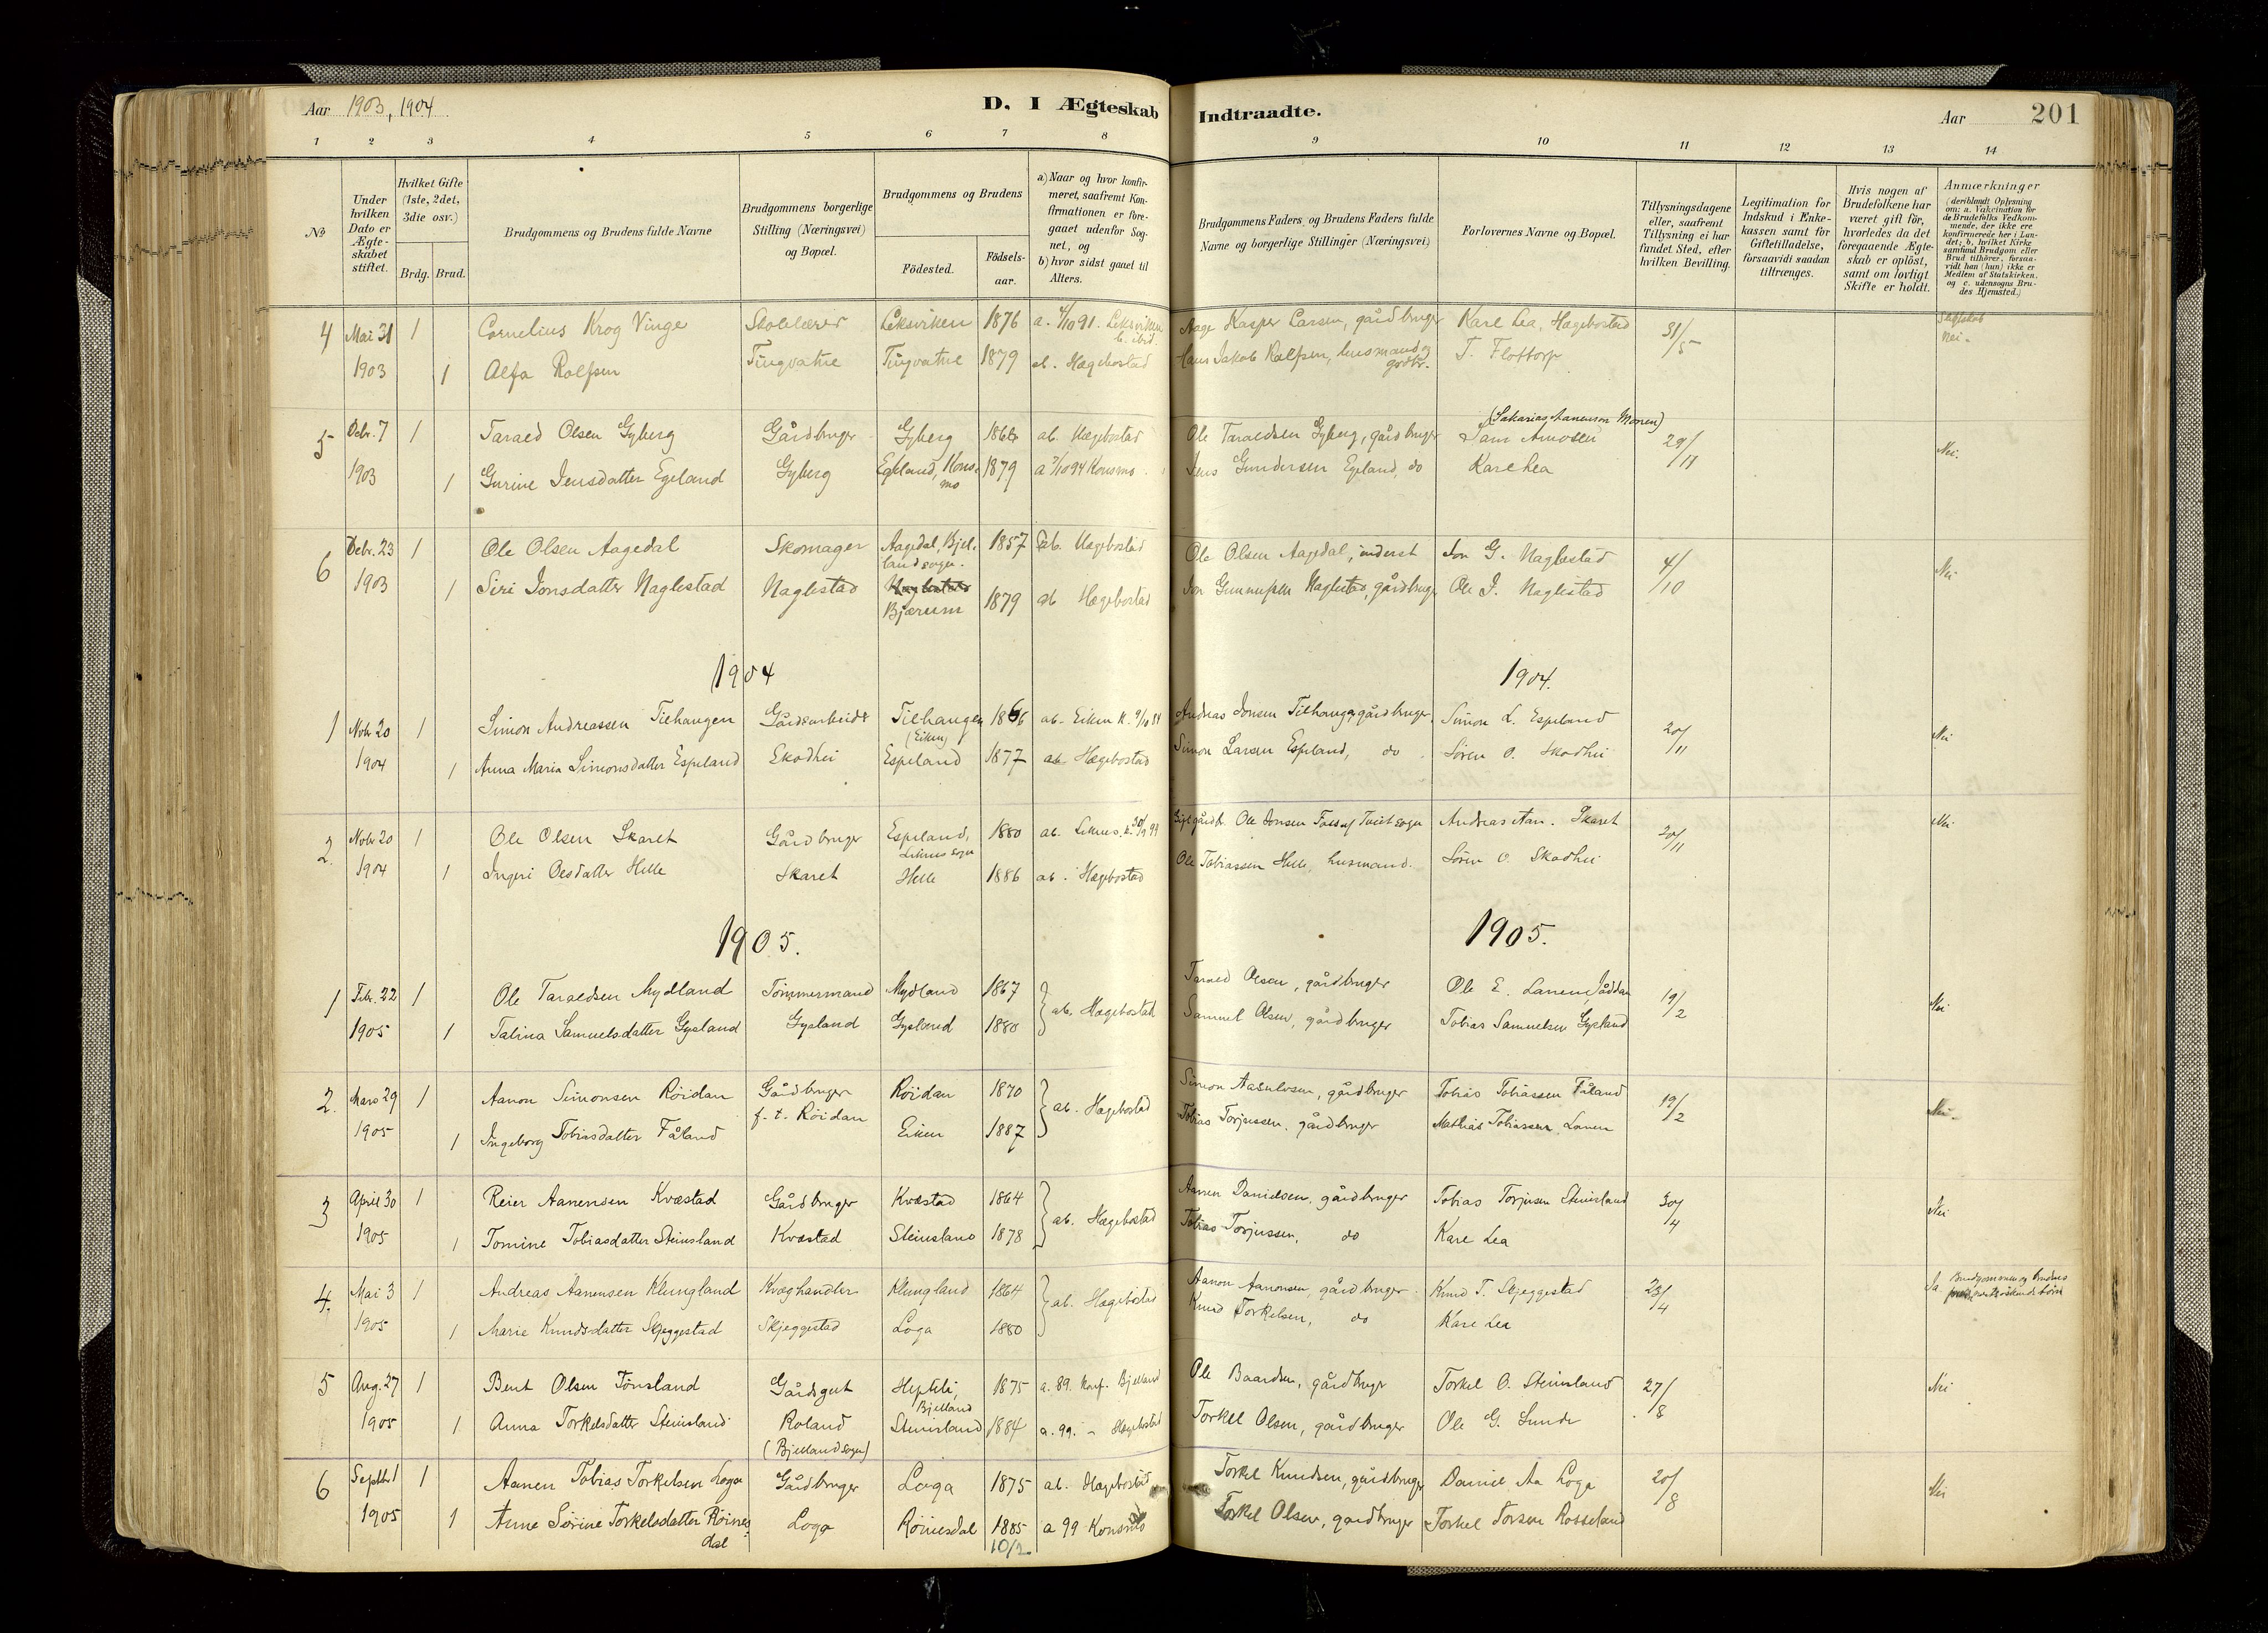 Aar 1903, 1904
D. I Ægteskab Indtraadte.
Aar 201
1 2 3 4 5 6 7 8 9 10 11 12 13 14
№
Under hvilken Dato er Ægteskabet stiftet.
Hvilket Gifte (1ste, 2det, 3die osv.)
Brdg. Brud.
Brudgommens og Brudens fulde Navne
Brudgommens borgerlige Stilling (Næringsvei) og Bopæl.
Brudgommens og Brudens
Födested.
Födselsaar.
a) Naar og hvor konfirmeret, saafremt Konfirmationen er foregaaet udenfor Sognet, og
b) hvor sidst gaaet til Alters.
Brudgommens Faders, og Brudens Faders fulde Navne og borgerlige Stillinger (Næringsvei)
Forlovernes Navne og Bopæl.
Tillysningsdagene eller, saafremt Tillysning ei har fundet Sted, efter hvilken Bevilling.
Legitimation for Indskud i Enkekassen samt for Giftetilladelse, forsaavidt saadan tiltrænges.
Hvis nogen af Brudefolkene har været gift för, hvorledes da det foregaaende Ægteskab er oplöst, samt om lovligt Skifte er holdt.
Anmærkninger
(deriblandt Oplysning om: a. Vakcination for de Brudefolks Vedkommende, der ikke ere konfirmerede her i Landet; b. hvilket Kirkesamfund Brudgom eller Brud tilhörer, forsaavidt han (hun) ikke er Medlem af Statskirken. og c. udensogns Brudes Hjemsted.)
4 Mai 31 1 Cornelius Krog Vinge Skolelærer Leksviken 1876 a. 4/10 91. Leksviken b. ibid. Aage Kasper Larsen, gårdbruger Kare Lea, Hægebostad 31/5 Slegtskab Nei.
1903 1 Alfa Rolfsen Tingvatne Tingvatne 1879 ab. Hægebostad Hans Jakob Rolfsen, husmand og T. Flottorp
5 Debr. 7 1 Taraed Olsen Gyberg Gårdbruger Gyberg 1866 ab. Hægebostad Ole Taraldsen Gyberg, gårdbruger (Sakarias Aanenson Monen) 29/11 Nei.
1903 1 Gurine Jensdatter Egeland Gyberg Egeland, Konsmo 1879 a 7/10 94 Konsmo Jens Gundersen Egeland, do Kare Lea
6 Debr. 23 1 Ole Olsen Aagedal Skomager Aagedal, Bjellandsogn. 1857 ab. Hægebostad Ole Olsen Aagedal, inderst Jon G. Naglestad 4/10 Nei
1903 1 Siri Jonsdatter Naglestad Naglestad Bjærum 1879 ab Hægebostad Jon Gunnufsen Naglestad, gårdbruger Ole J. Naglestad
1904 1904.
1 Nobr 20 1 Simon Andreassen Tilhaugen Gårdsarbeider Tilhaugen (Eiken) 1866 ab. Eiken K. 9/10 84 Andreas Jonsen Tilhaugen gårdbruger, Simon L. Espeland 20/11 Nei
1904 1 Anna Maria Simonsdatter Espeland Skodhei Espeland 1877 ab Hægebostad Simon Larsen Espeland, do Søren O. Skodhei
2 Nobr 20 1 Ole Olsen Skaret Gårdbruger Espeland, 1880 ab. Liknes. k. 30/9 94 Andreas Aan. Skaret 20/11 Nei
1904 1 Ingeri Olesdatter Helle Skaret Helle 1886 ab. Hægebostad Ole Tobiassen Helle, husmand. Søren O. Skodhei
1905. 1905.
1 Febr. 22 1 Ole Taraldsen Mydland Tømmermand Mydland 1867 ab. Hægebostad Taraed Olsen, gårdbruger Ole E. Lanen, 19/2 Nei
1905 1 Talina Samuelsdatter Gysland Gysland Gysland 1880 Samuel Olsen, gårdbruger Tobias Samuelsen Gysland
2. Mars 29 1 Aanon Simonsen Röidan Gårdbruger Röidan 1870 ab. Hægebostad Simon Aasulvsen, gårdbruger Tobias Tobiassen Fåland 19/2 Nei.
1905 1 Ingeborg Tobiasdatter Fåland f. t. Röidan Eiken 1887 Tobias Torjussen, gårdbruger Mathias Tobiassen Lanen
3 April 30 1 Reier Aanensen Kvæstad Gårdbruger Kvæstad 1864 ab. Hægebostad Aanen Danielsen, gårdbruger Tobias Torjusen Steinsland 30/4 Nei
1905 1 Tomine Tobiasdatter Steinsland Kvæstad Steinsland 1878 Tobias Torjussen, do Kare Lea
4. Mai 3 1 Andreas Aanensen Klungland Kvæghandler Klungland 1864 ab. Hægebostad Aanon Aanonsen, gårdbruger Knud T. Skjeggestad 23/4 Ja Brudgommen og brudens søskendebörn
1905 1 Marie Knudsdatter Skjeggestad Skjeggestad Loga 1880 Knud Torkelsen, do Kare Lea
5 Aug. 27 1 Bent Olsen Tönsland Gårdsgut Bjelland 1875 a. 89. Konf. Bjelland Ole Baardsen, gårdbruger Torkel O. Steinsland 27/8 Nei
1905 1 Anna Torkelsdatter Steinsland Roland (Bjellandsogn) Steinsland 1884 a. 99. - Hægebostad Torkel Olsen, gårdbruger Ole G. Lunde
6 Septbr 1 1 Aanen Tobias Torkelsen Loga Gårdbruger Loga 1875 ab. Hægebostad Torkel Knudsen, gårdbruger Daniel Aa Loga 20/8 Nei
1905 1 Anne Sörine Torkelsdatter Röinesdal Loga Röinesdal 1885 10/2 a 99 Konsmo Torkel Olsen, gardbruger Torkel Torsen Rosseland